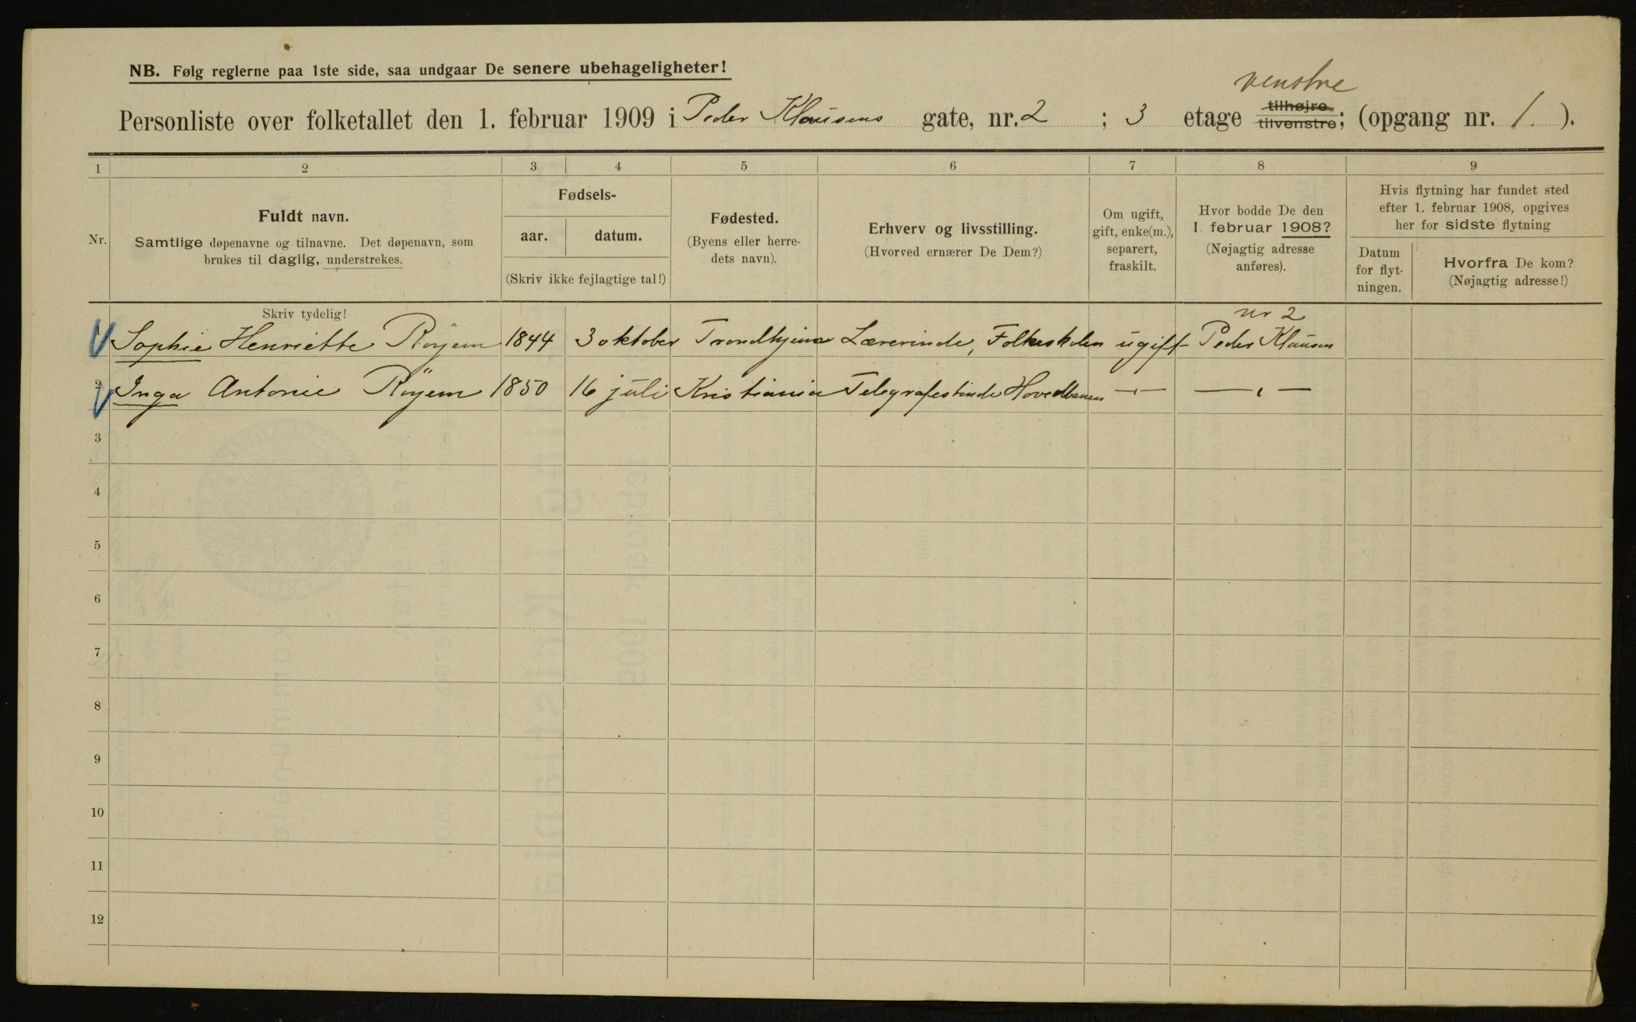 NB. Følg reglerne paa 1ste side, saa undgaar De senere ubehageligheter!
venstre
Personliste over folketallet den 1. februar 1909 i Peder Klausens gate, nr. 2 ; 3 etage tilhøjre tilvenstre; (opgang nr. 1. ).
1 2 3 4 5 6 7 8 9
Nr.
Fuldt navn.
Samtlige døpenavne og tilnavne. Det døpenavn, som
brukes til daglig, understrekes.
Fødsels-
aar. datum.
(Skriv ikke fejlagtige tal!)
Fødested.
(Byens eller herre-
dets navn).
Erhverv og livsstilling.
(Hvorved ernærer De Dem?)
Om ugift,
gift, enke(m.),
separert,
fraskilt.
Hvor bodde De den
1. februar 1908?
(Nøjagtig adresse
anføres).
Hvis flytning har fundet sted
efter 1. februar 1908, opgives
her for sidste flytning
Datum
for flyt-
ningen.
Hvorfra De kom?
(Nøjagtig adresse!)
Skriv tydelig!
nr 2
Sophie Henriette Röyem 1844 3 oktober Trondhjem Lærerinde, Folkeskolen ugift Peder Klausens
2 Inga Antonie Röyem 1850 16 juli Kristiania Telegrafistinde Hovedbanen — " — — " —
3
4
5
6
7
8
9
10
11
12